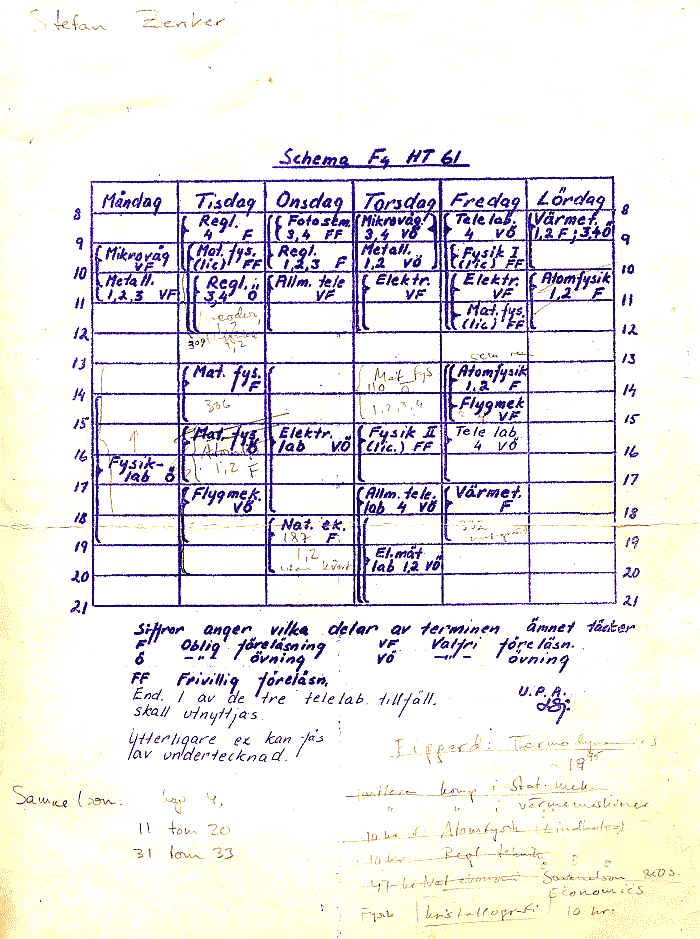 Stefan Zenker
Schema F4 HT 61
Måndag Tisdag Onsdag Torsdag Fredag Lördag
8 Regl. Fotosem. Mikrovåg Tele lab. Värmet. 8
4 F 3,4 FF 3,4 VÖ 4 VÖ 1,2 F; 3,4 Ö
9 Mikrovåg Mat. fys. Regl. Metall. Fysik I 9
VF (lic) FF 1,2,3 F 1,2 VÖ (lic) FF
10 Metall. Regl. Allm. tele Elektr. Elektr. Atomfysik 10
1,2,3 VF 3,4 Ö VF VF VF 1,2 F
11 Mat. fys. 11
1,2 (lic) FF
12 309 1,2 12
13 Mat. fys. Mat fys Atomfysik 13
F 110 Ö 1,2 F
14 306 1,2,3,4 Flygmek 14
VF
15 Mat. fys. Elektr. Fysik II Tele lab. 15
Ö lab VÖ (lic.) FF 4 VÖ
16 Fysik- 1,2 F 16
lab Ö
17 Flygmek. Allm. tele. Värmet. 17
VÖ lab 4 VÖ F
18 Nat. ek. 332 18
187 F
19 1,2 El. mät 19
lab 1,2 VÖ
20 20
21 21
Siffror anger vilka delar av terminen ämnet täcker
F Oblig föreläsning VF Valfri föreläsn.
Ö -"- övning VÖ -"- övning
FF Frivillig föreläsn.
End. 1 av de tre telelab. tillfäll. U.P.A.
skall utnyttjas.
Ytterligare ex kan fås
av undertecknad.
Samuelson. kap 4,
11 tom 20
31 tom 33
i Stat. mek.
" " i värmemaskiner
10 kr. Atomfysik (Lindholm)
10 kr. Regl. teknik
47 kr Nat ekonomi Samuelson
Economics
Fysik kristallografi 10 kr.